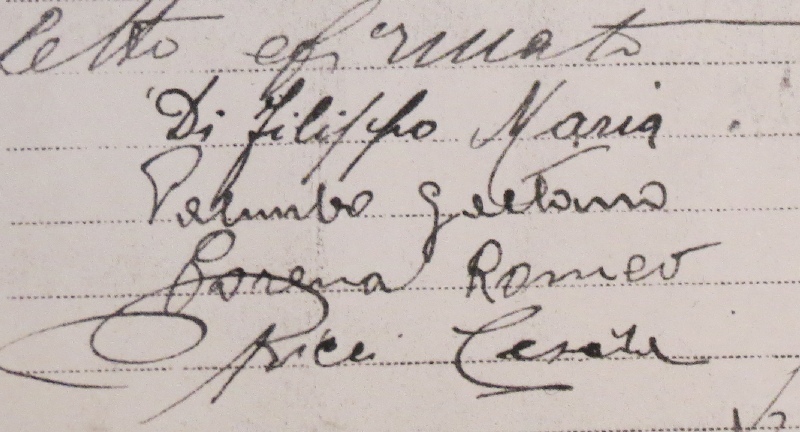 Letto e firmato
Di Filippo Maria
Palumbo Gaetano
Romeo
Ricci Cesare